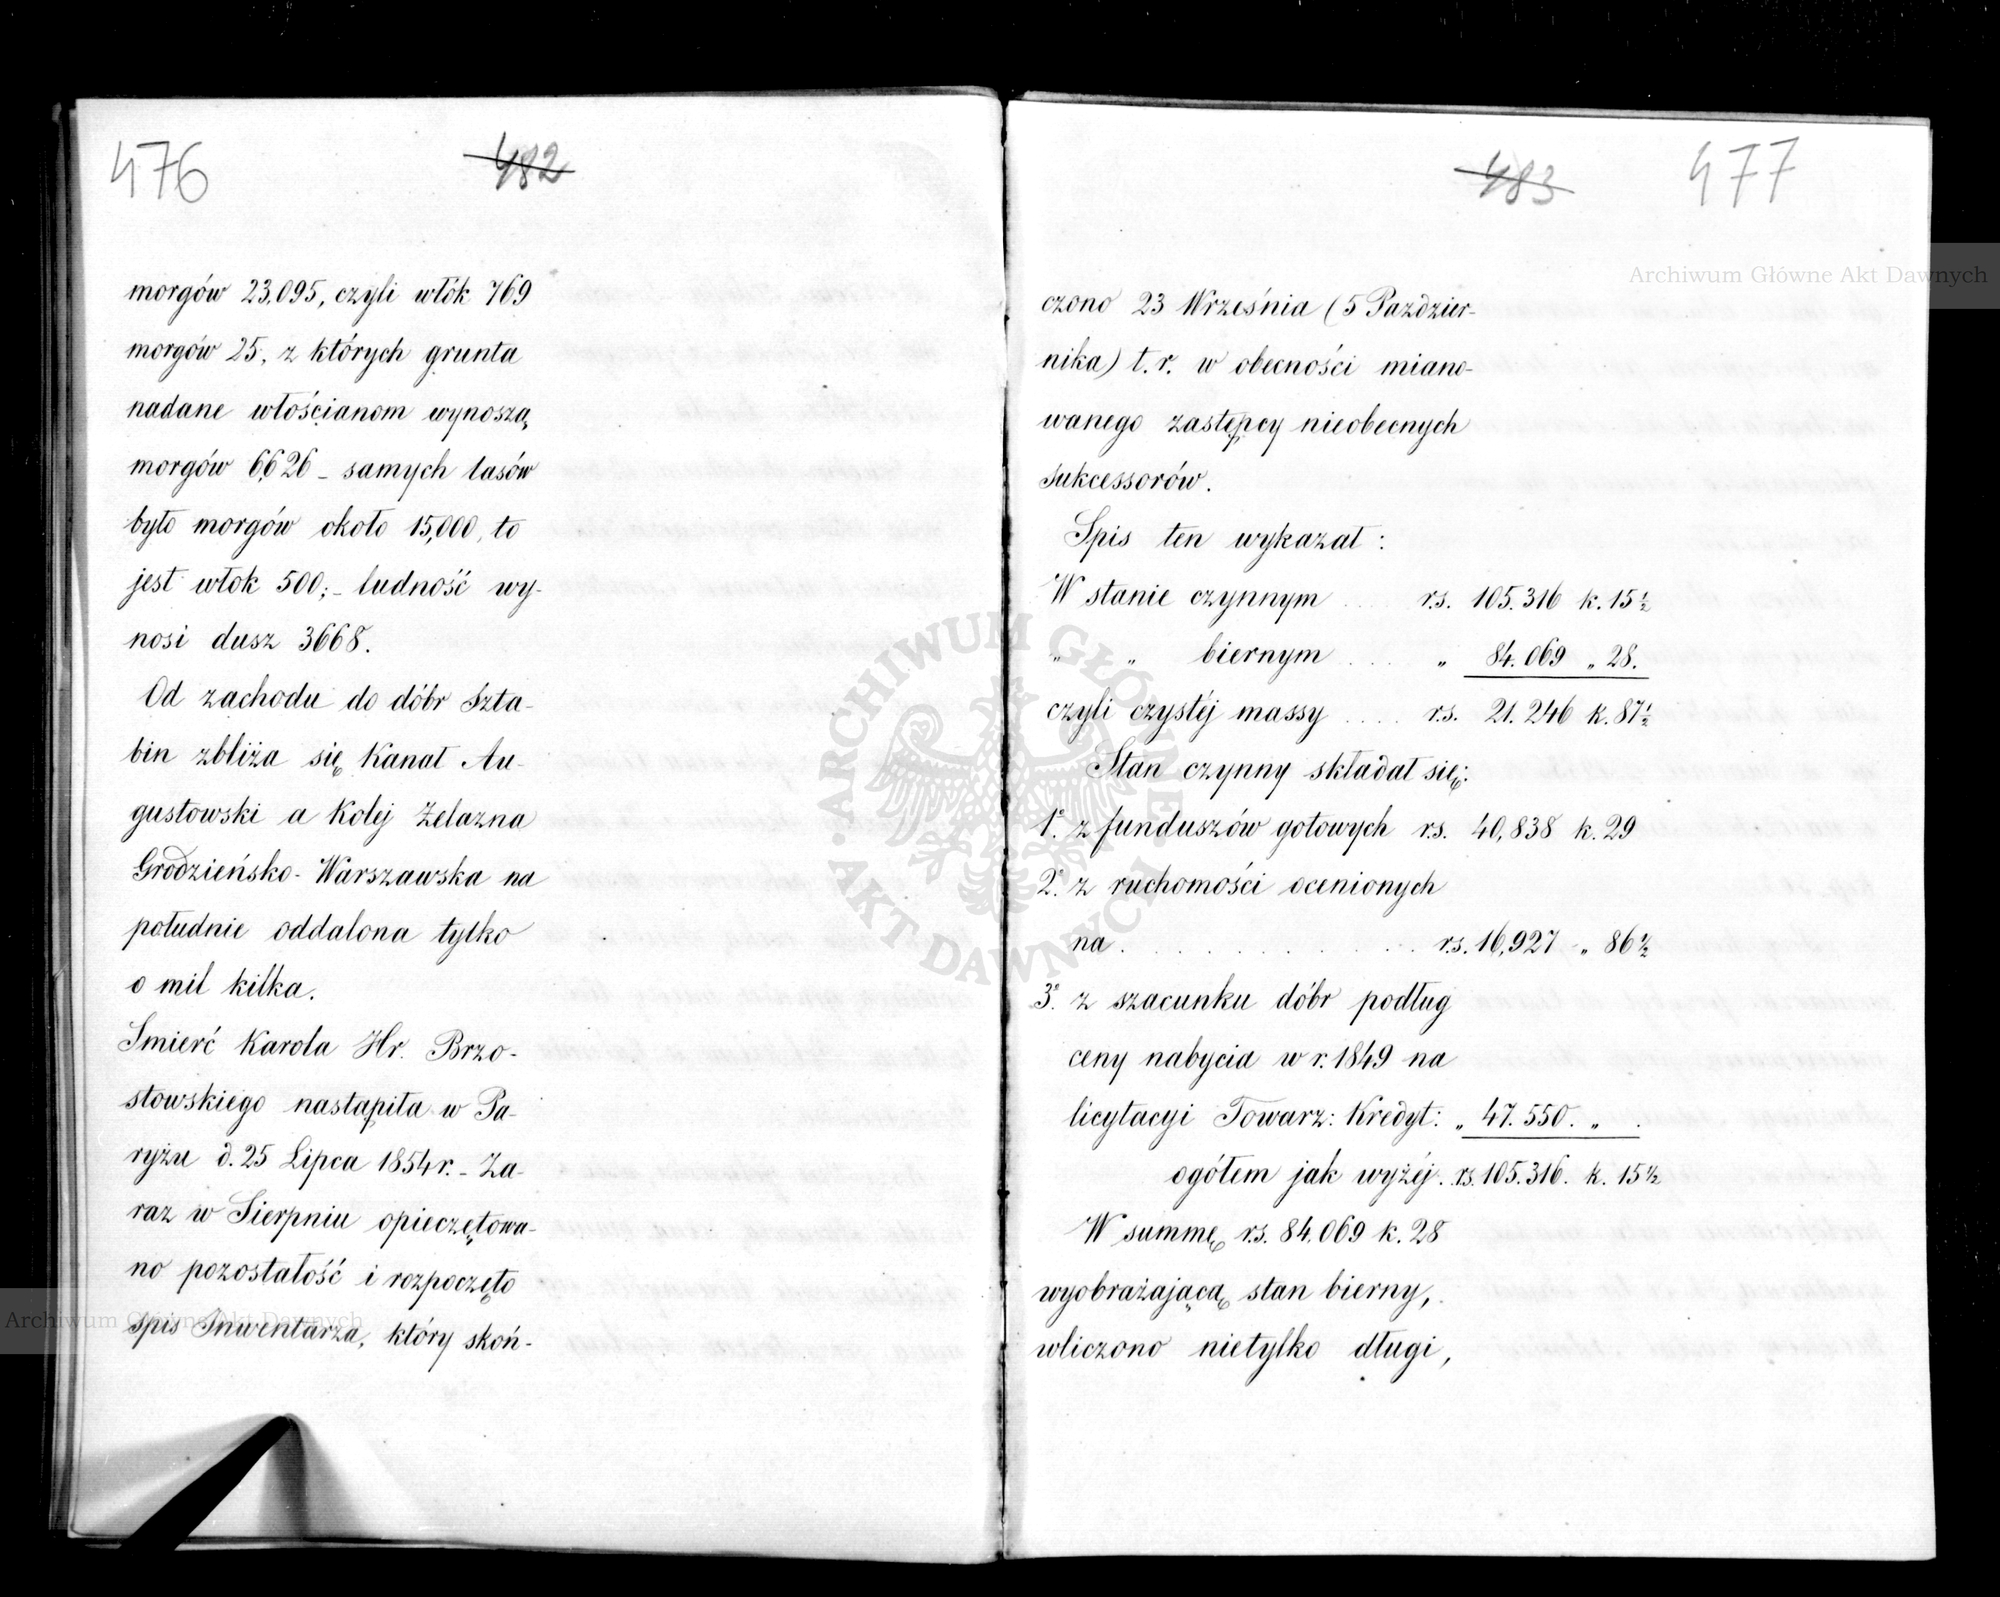 476
482
morgów 23,095, czyli włók 769
morgów 25, z których grunta
nadane włościanom wynoszą
morgów 6626 - samych lasów
było morgów około 15,000, to
jest włok 500; - ludność wy-
nosi dusz 3668.
Od zachodu do dóbr Szta-
bin zbliża się Kanał Au-
gustowski a Kolej Żelazna
Grodzieńsko-Warszawska na
południe oddalona tylko
o mil kilka.
Smierć Karola Hr. Brzo-
stowskiego nastąpiła w Pa-
ryżu d. 25 Lipca 1854 r. - Za-
raz w Sierpniu opieczętowa-
no pozostałość i rozpoczęto
spis Inwentarza, który skoń-
483
477
czono 23 Września (5 Paździer-
nika) t. r. w obecności miano-
wanego zastępcy nieobecnych
sukcessorów.
Spis ten wykazał:
W stanie czynnym .... rs. 105.316 k. 15½
„ „ biernym .... „ 84.069 „ 28.
czyli czystéj massy .... rs. 21.246 k. 87½
Stan czynny składał się:
1º. z funduszów gotowych rs. 40,838 k. 29
2º. z ruchomości ocenionych
na . . . . . . . . rs. 16,927 - „ 86½
3º. z szacunku dóbr podług
ceny nabycia w r. 1849 na
licytacyi Towarz: Kredyt: „ 47.550. „ .
ogółem jak wyżéj. rs. 105.316. k. 15½
W summę rs. 84.069 k. 28
wyobrażającą stan bierny,
wliczono nietylko długi,
Archiwum Główne Akt Dawnych
Archiwum Główne Akt Dawnych
ARCHIWUM GŁÓWNE · AKT DAWNYCH ·